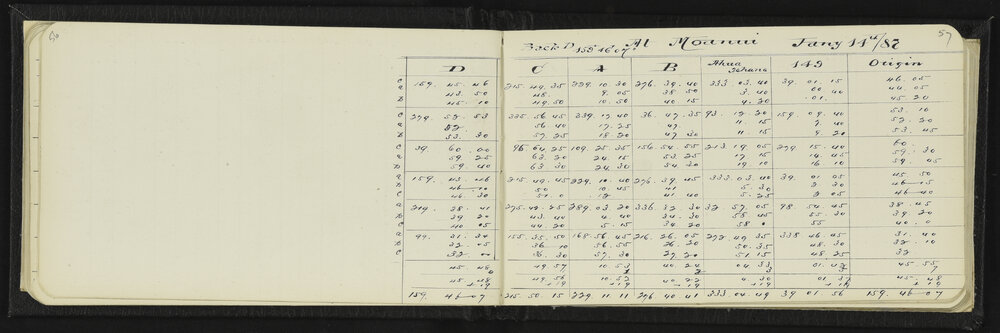 50
57
Back D 159° 46' 07" At Moanui Jany 11th/87
D C A B Ahua Tehano 149 Origin
c 159. 45. 46 215. 49. 35 229. 10. 30 276. 39. 40 333. 03. 40 39. 01. 15 46. 05
a 43. 50 48. 9. 05 38 50 3. 40 00 40 44. 05
b 45. 10 49. 50 10. 50 40 15 4. 20 .01. 45 20
c 279. 52. 53 335. 56 45 339. 17. 40 36. 47. 35 93. 12. 20 159. 09. 40 53. 10
a 52. 56 40 17. 25 47. 11. 15 9. 40 52. 20
b 53. 30 57. 25 18 20 47 30 11. 15 9 20 53. 45
c 39. 60. 00 96. 64 25 109. 25. 35 156. 54. 55 213. 19 05 279. 15. 40 60.
a 59. 25 63. 20 24. 15 53. 25 17 15 14. 45 59. 30
b 59. 40 63. 30 24. 30 54 30 19. 10 16 10 59. 45
a 159. 45. 46 215. 49. 45 229. 10. 40 276. 39. 45 333. 03. 40 39. 01 05 45. 50
b 46 10 50 10. 45 41 5. 30 2 30 46 15
c 46. 30 51. 0 12 41 40 5. 25 2 05 46 40
a 219. 38. 41 275. 42. 25 289. 03. 20 336. 32. 30 32. 57. 05 98. 54. 45 38. 45
b 39 20 43. 40 4. 40 34. 30 58 45 55 30 39 20
c 40 05 44. 20 5. 15 34. 20 58. 0 55 40. 0
a 99. 31. 34 155. 35. 50 168. 56. 45 216. 26. 05 272. 49. 35 338 46 45 31. 40
b 32. 05 36. 10 56. 55 26. 20 50. 35 48. 30 32. 10
c 32. 00 36. 30 57. 30 27. 20 51. 15 48. 25 33
45. 48 49 57 10. 53 40 24 04. 33 01. 45. 55
45. 48 49. 56 10. 52 40 22 4. 30 01. 37 45. 48
+ 19 + 19 + 19 + 19 + 19 + 19 + 19
159. 46 07 215. 50. 15 229. 11. 11 276 40 41 333. 04. 49 39 01 56 159. 46 07